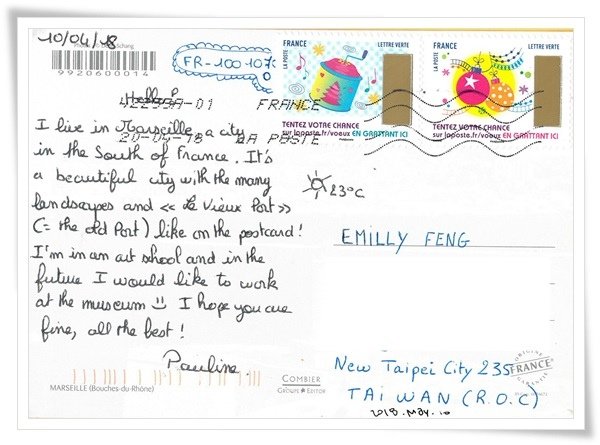 10/04/18
9920600014
FR-1001078
Hello!
42299A-01 FRANCE
20-04-18 LA POSTE
I live in Marseille, a city
in the South of France. It's
a beautiful city with the many
landscapes and << Le Vieux Port >>
(= the old Port) like on the postcard!
I'm in an art school and in the
future I would like to work
at the museum I hope you are
fine, all the best!
Pauline.
MARSEILLE (Bouches-du-Rhône)
FRANCE LETTRE VERTE
LA POSTE
TENTEZ VOTRE CHANCE
sur laposte.fr/voeux EN GRATTANT ICI
FRANCE LETTRE VERTE
LA POSTE
TENTEZ VOTRE CHANCE
sur laposte.fr/voeux EN GRATTANT ICI
23°C
EMILLY FENG
COMBIER
GROUPE EDITOR
New Taipei City 235
TAIWAN (R.O.C)
2018.May.10
ORIGINE
FRANCE
GARANTIE